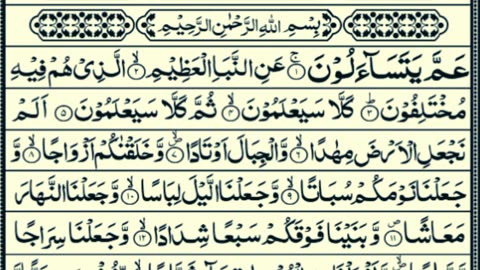 بِسْمِ اللهِ الرَّحْمٰنِ الرَّحِيْمِ
عَمَّ يَتَسَآءَلُوْنَ ۚ﴿۱﴾ عَنِ النَّبَاِ الْعَظِيْمِ ۙ﴿۲﴾ الَّذِىْ هُمْ فِيْهِ
مُخْتَلِفُوْنَ ؕ﴿۳﴾ كَلَّا سَيَعْلَمُوْنَ ۙ﴿۴﴾ ثُمَّ كَلَّا سَيَعْلَمُوْنَ ﴿۵﴾ اَلَمْ
نَجْعَلِ الْاَرْضَ مِهٰدًا ۙ﴿۶﴾ وَّالْجِبَالَ اَوْتَادًا ۪ۙ﴿۷﴾ وَّخَلَقْنٰكُمْ اَزْوَاجًا ۙ﴿۸﴾ وَّ
جَعَلْنَا نَوْمَكُمْ سُبَاتًا ۙ﴿۹﴾ وَّجَعَلْنَا الَّيْلَ لِبَاسًا ۙ﴿۱۰﴾ وَّجَعَلْنَا النَّهَارَ
مَعَاشًا ۪﴿۱۱﴾ وَّبَنَيْنَا فَوْقَكُمْ سَبْعًا شِدَادًا ۙ﴿۱۲﴾ وَّجَعَلْنَا سِرَاجًا